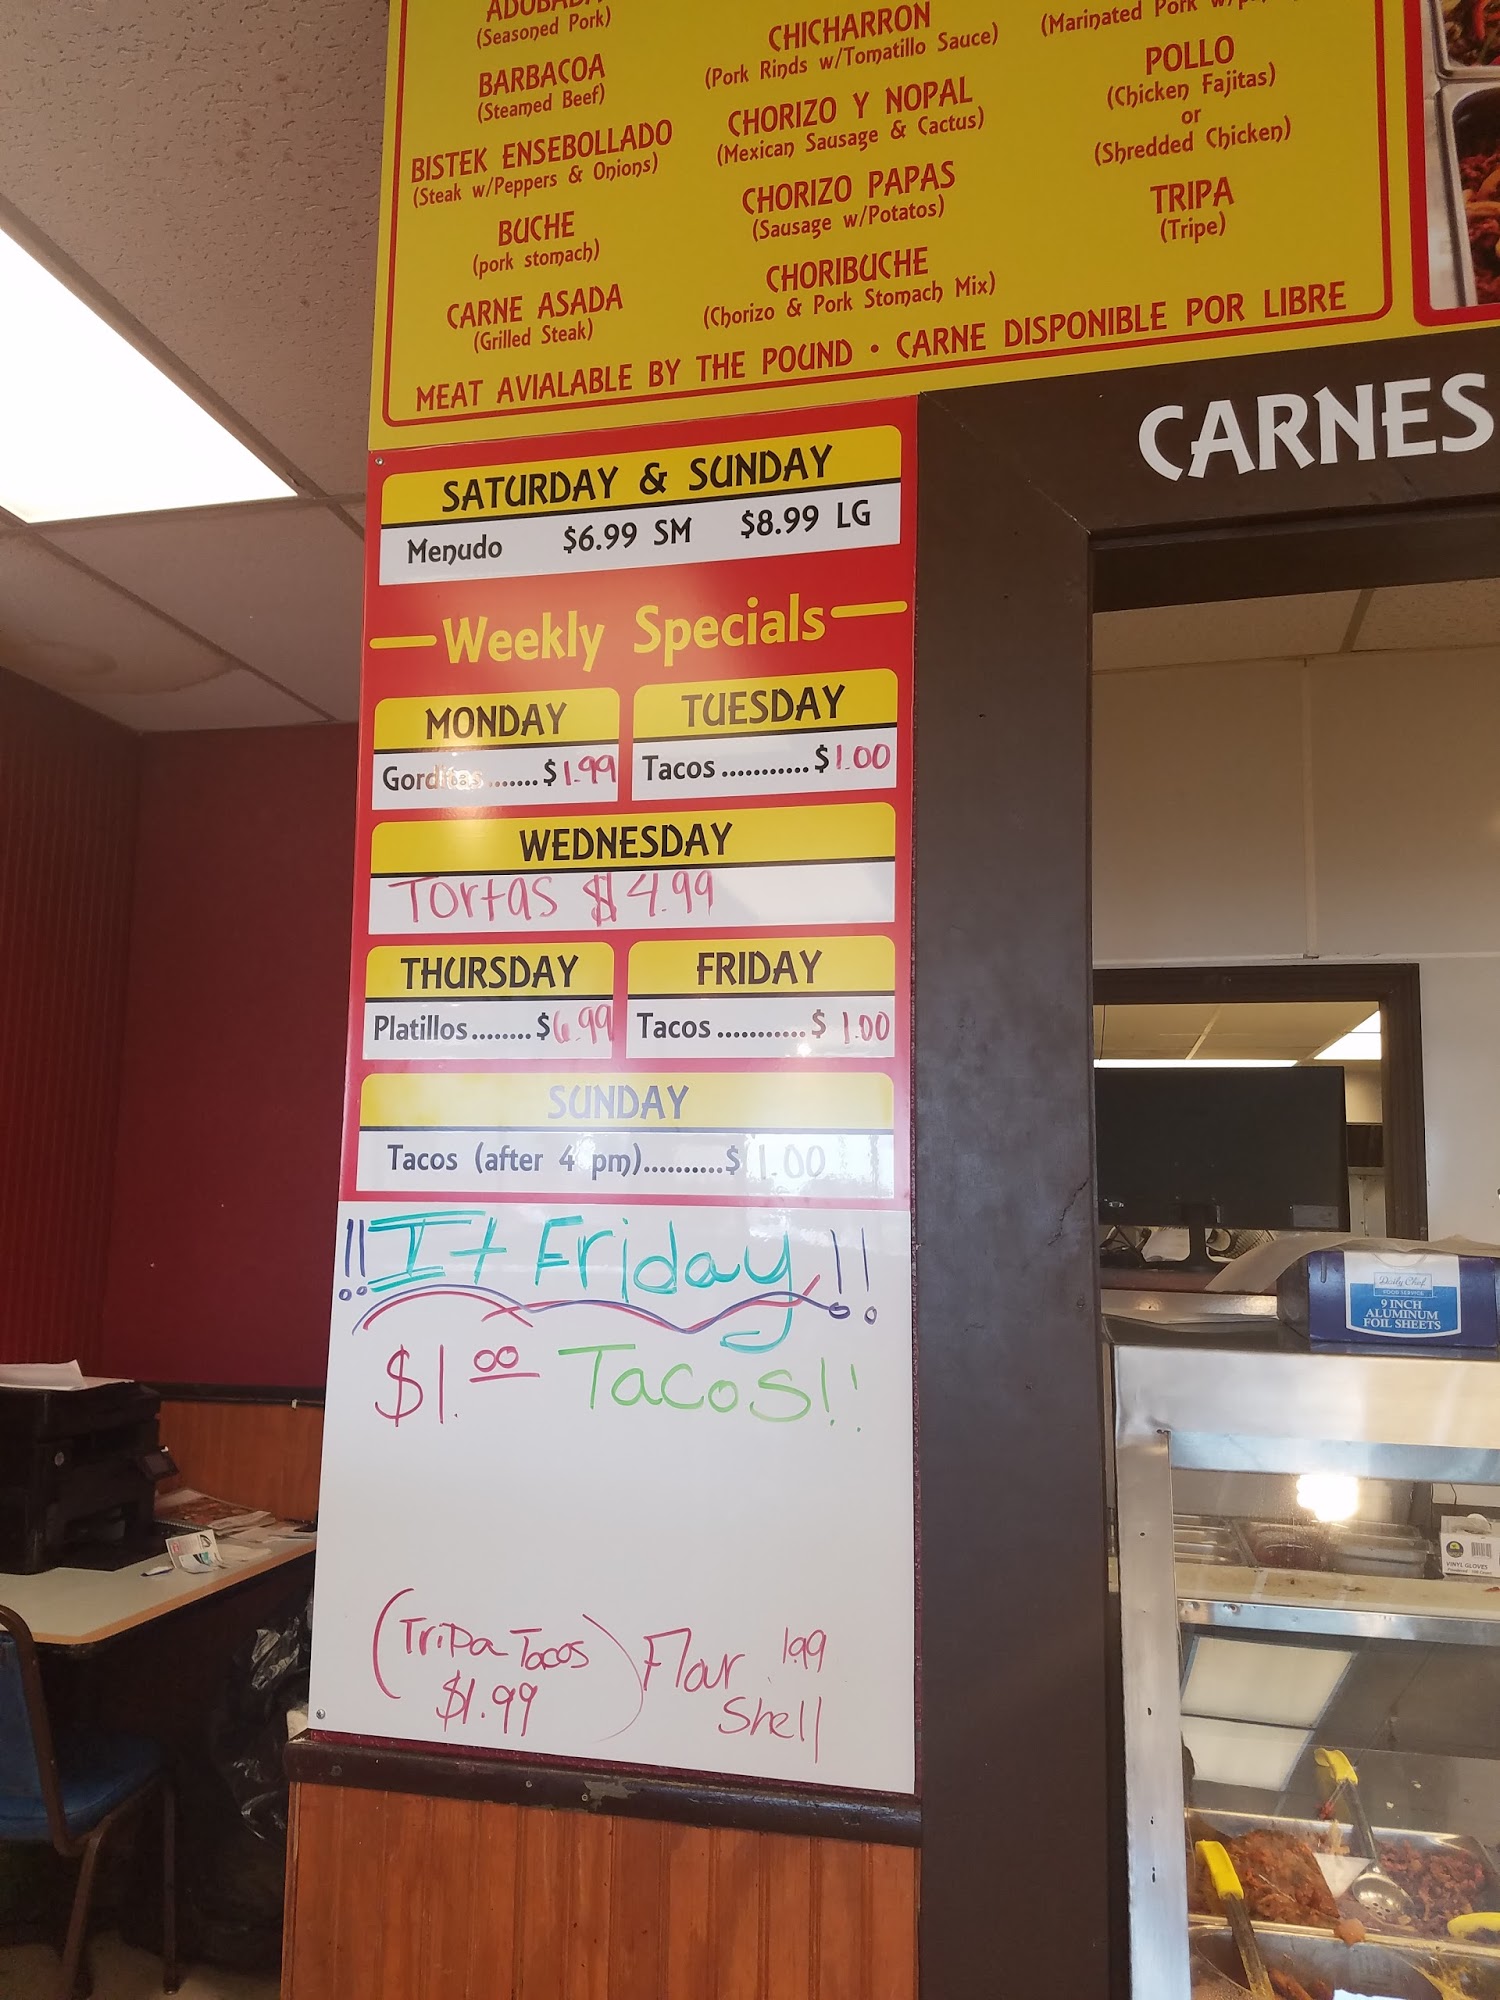 ADOBADA
(Seasoned Pork)
BARBACOA
(Steamed Beef)
BISTEK ENSEBOLLADO
(Steak w/Peppers & Onions)
BUCHE
(pork stomach)
CARNE ASADA
(Grilled Steak)
CHICHARRON
(Pork Rinds w/Tomatillo Sauce)
CHORIZO Y NOPAL
(Mexican Sausage & Cactus)
CHORIZO PAPAS
(Sausage w/Potatos)
CHORIBUCHE
(Chorizo & Pork Stomach Mix)
(Marinated Pork
POLLO
(Chicken Fajitas)
or
(Shredded Chicken)
TRIPA
(Tripe)
MEAT AVIALABLE BY THE POUND • CARNE DISPONIBLE POR LIBRE
CARNES
SATURDAY & SUNDAY
Menudo $6.99 SM $8.99 LG
Weekly Specials
MONDAY
Gorditas.......$1.99
TUESDAY
Tacos...........$1.00
WEDNESDAY
Tortas $4.99
THURSDAY
Platillos........$6.99
FRIDAY
Tacos...........$ 1.00
SUNDAY
Tacos (after 4 pm)..........$ 1.00
!! It Friday !!
$1.00 Tacos!!
(Tripa Tacos
$1.99)
Flour 1.99
Shell
Daily Chef
FOOD SERVICE
9 INCH
ALUMINUM
FOIL SHEETS
VINYL GLOVES